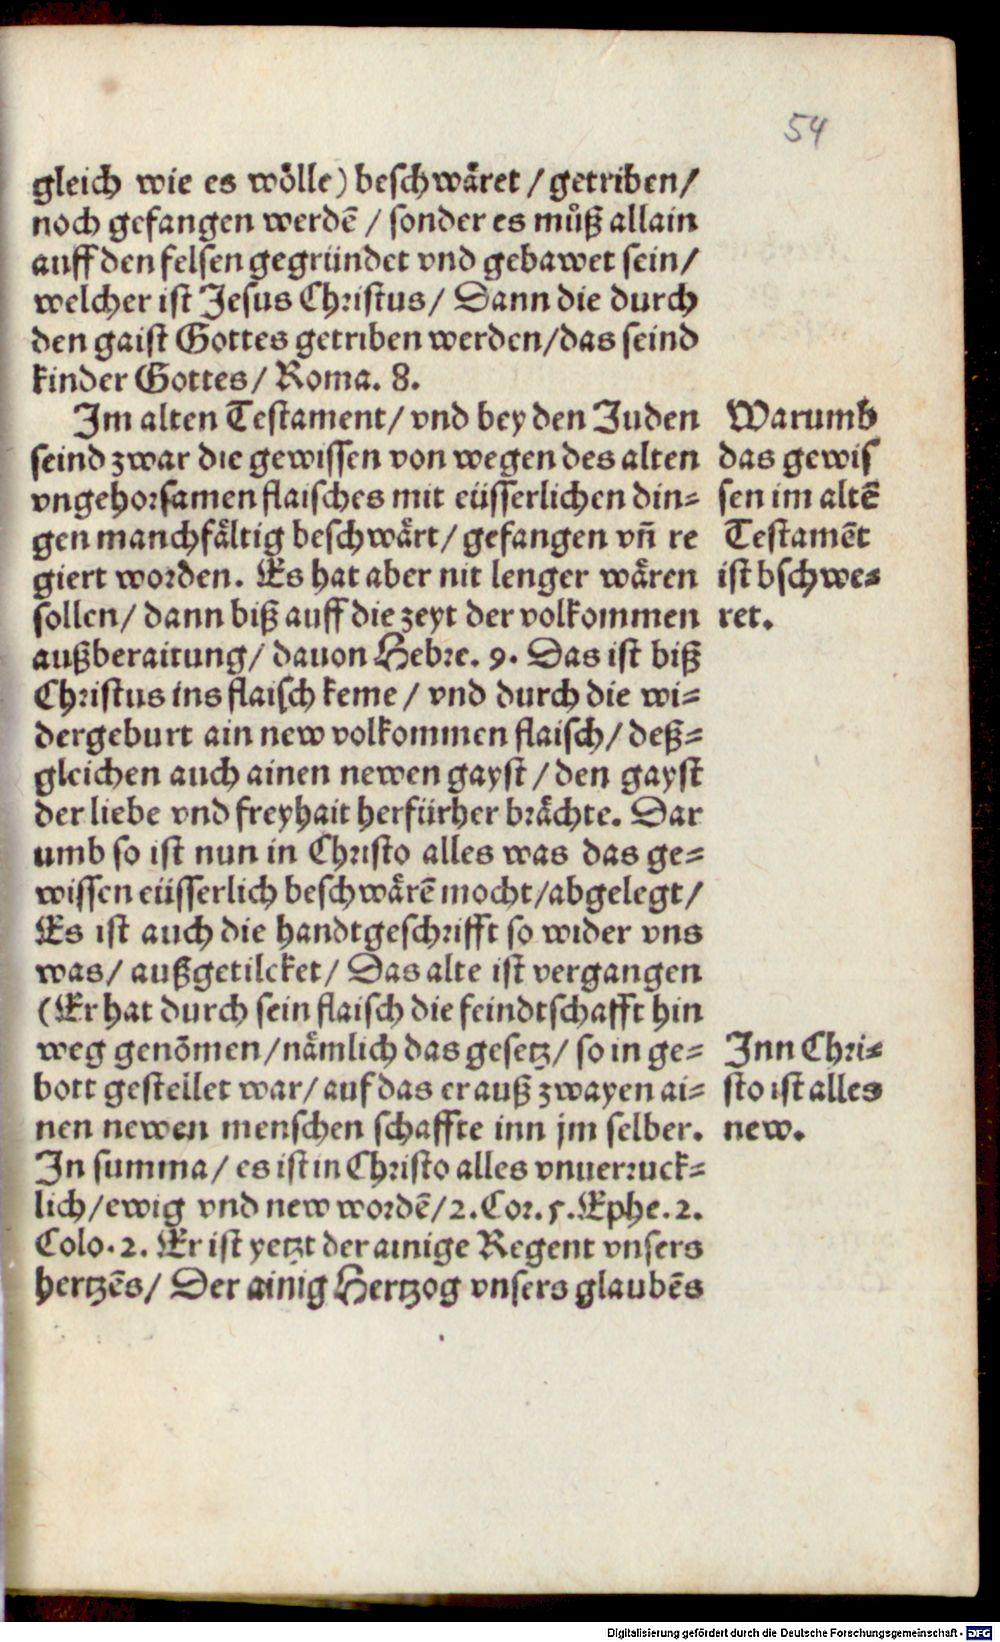 54
gleich wie es woͤlle) beschwaͤret / getriben /
noch gefangen werdē / sonder es muͦß allain
auff den felsen gegründet vnd gebawet sein /
welcher ist Jesus Christus / Dann die durch
den gaist Gottes getriben werden / das seind
kinder Gottes / Roma. 8.
Im alten Testament / vnd bey den Juden
seind zwar die gewissen von wegen des alten
vngehorsamen flaisches mit eüsserlichen din=
gen manchfaͤltig beschwaͤrt / gefangen vn̄ re
giert worden. Es hat aber nit lenger waͤren
sollen / dann biß auff die zeyt der volkommen
außberaitung / dauon Hebre. 9. Das ist biß
Christus ins flaisch keme / vnd durch die wi=
dergeburt ain new volkommen flaisch / deß=
gleichen auch ainen newen gayst / den gayst
der liebe vnd freyhait herfürher braͤchte. Dar
umb so ist nun in Christo alles was das ge=
wissen eüsserlich beschwaͤrē mocht / abgelegt /
Es ist auch die handtgeschrifft so wider vns
was / außgetilcket / Das alte ist vergangen
(Er hat durch sein flaisch die feindtschafft hin
weg genōmen / naͤmlich das gesetz / so in ge=
bott gestellet war / auf das er auß zwayen ai=
nen newen menschen schaffte inn jm selber.
In summa / es ist in Christo alles vnuerruck=
lich / ewig vnd new wordē / 2. Cor. 5. Ephe. 2.
Colo. 2. Er ist yetzt der ainige Regent vnsers
hertzēs / Der ainig Hertzog vnsers glaubēs
Warumb
das gewis
sen im altē
Testamēt
ist bschwe=
ret.
Inn Chri=
sto ist alles
new.
Digitalisierung gefördert durch die Deutsche Forschungsgemeinschaft - DFG